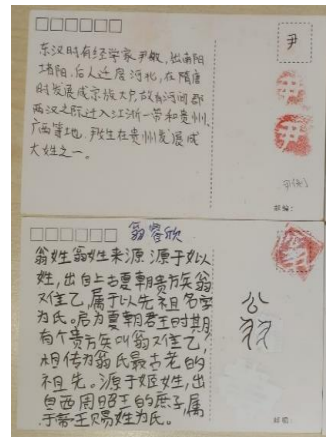 东汉时有经学家尹敏,出南阳
堵阳,后人迁居河北,在隋唐
时发展成宗族大户,故有河间郡
两汉之际迁入江浙一带和贵州、
广西等地,尹姓在贵州发展成
大姓之一。
尹
尹
尹
邮编:
翁蓉欣
翁姓翁姓来源 源于妃以
姓,出自上古夏朝贵族翁
难乙,属于以先祖名字
为氏。启为夏朝君王时其
有个贵族叫翁难乙,
相传为翁氏最古老的
祖先。源于姬姓,出
自西周昭王的庶子,属
于帝王赐姓为氏。
翁
公
羽
邮编: